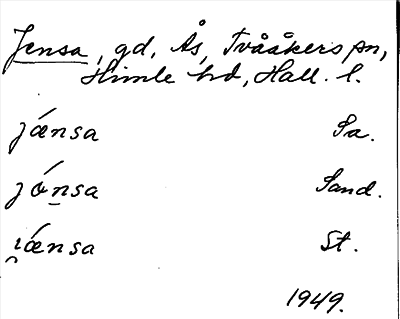 Jensa, gd, Ås, Tvååkers sn,
Himle hd, Hall. l.
jǽnsa Sa.
jónsa Sand.
i̯ǽnsa St.
1949.